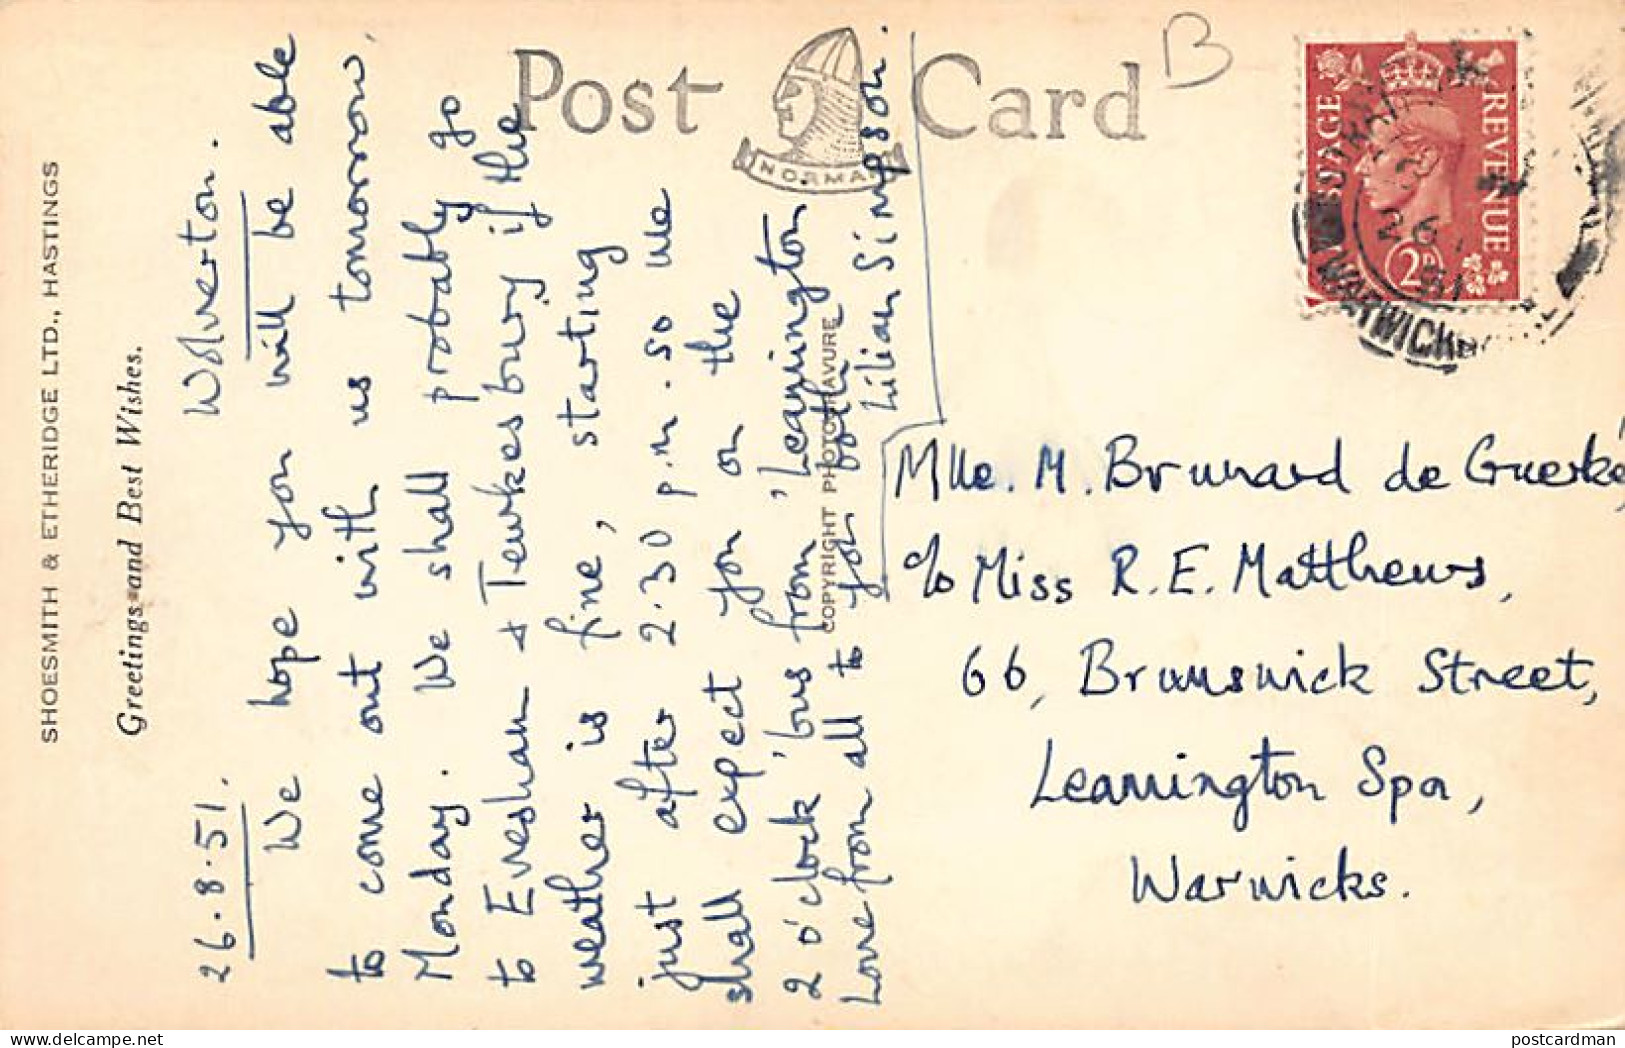 Post Card
B
NORMAN
POSTAGE REVENUE
2D
WARWICKS
SHOESMITH & ETHERIDGE LTD., HASTINGS
Greetings and Best Wishes.
COPYRIGHT PHOTOGRAVURE
26.8.51. Wolverton.
We hope you will be able
to come out with us tomorrow,
Monday. We shall probably go
to Evesham & Tewkesbury if the
weather is fine, starting
just after 2.30 p.m. so we
shall expect you on the
2 o'clock 'bus from 'Leamington
Love from all to you both
Lilian Simpson.
Mlle. M. Brunard de
c/o Miss R. E. Matthews,
66, Brunswick Street,
Leamington Spa,
Warwicks.
postcardman